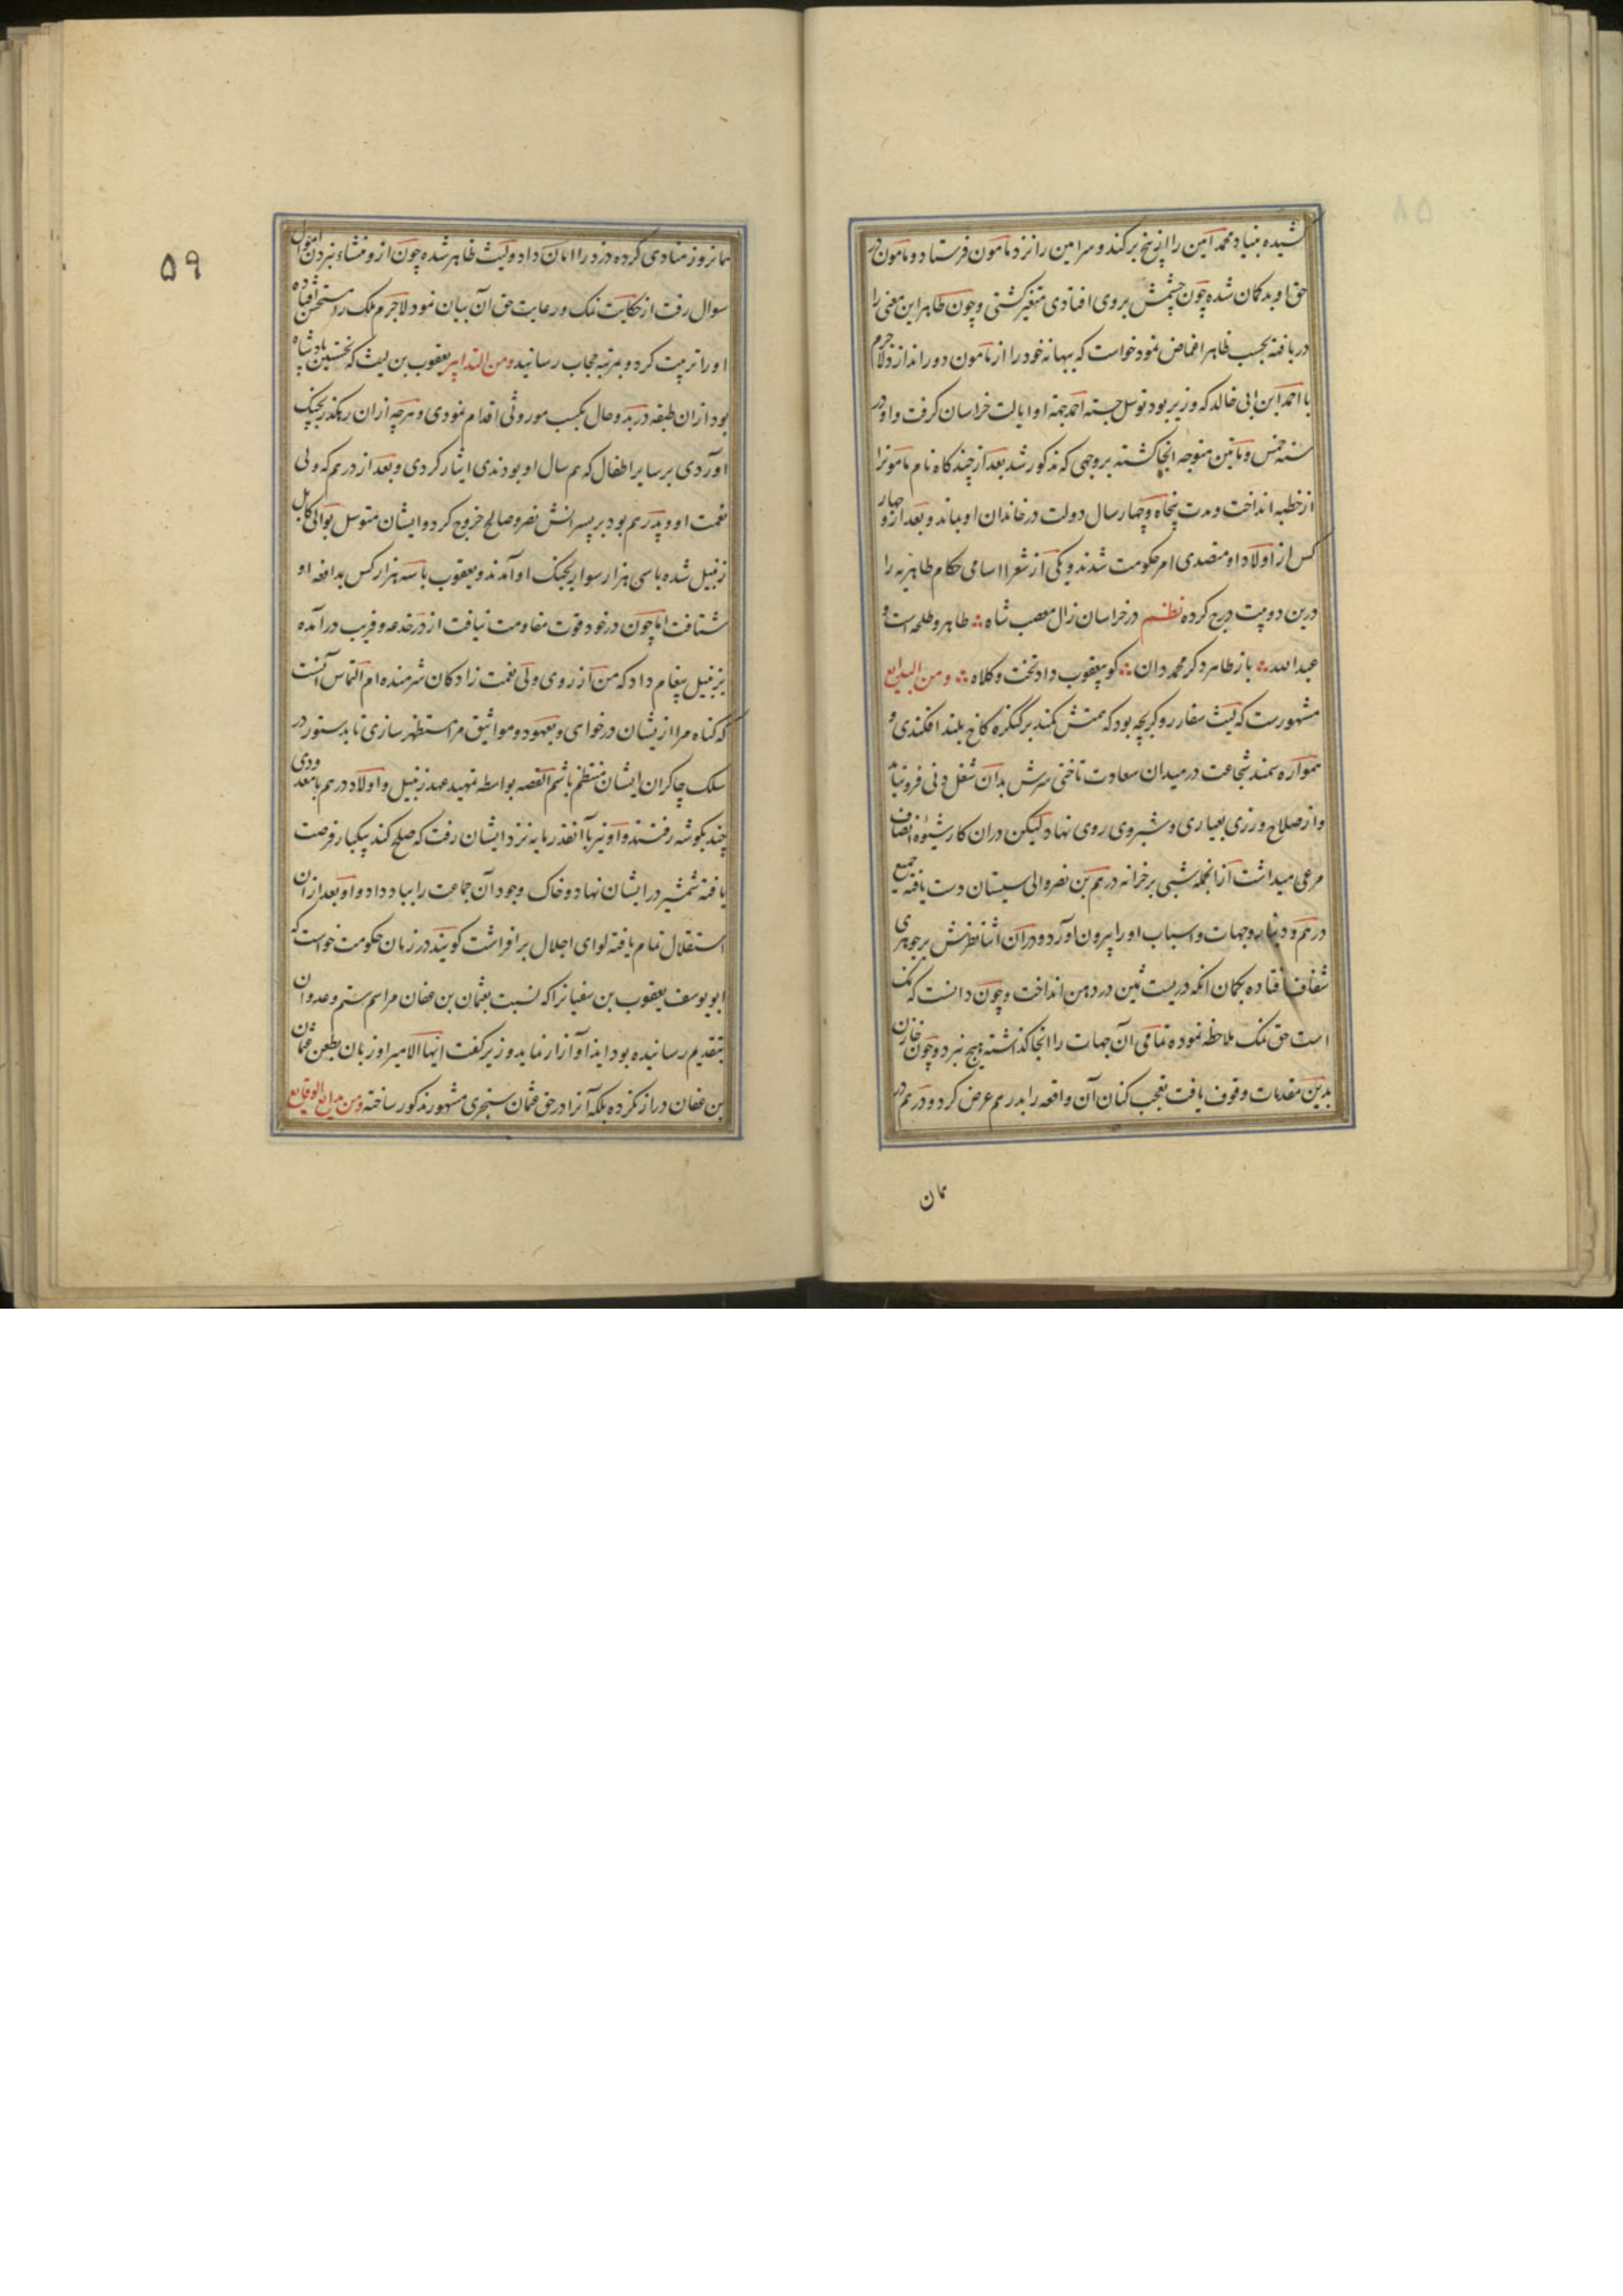 کشیده بنیاد محمد امین را از بیخ برکند و سر امین را نزد مامون فرستاد و مامون در
حق او بدکمان شده چون چشمش بروی افتادی متغیر کشتی و چون طاهر این معنی را
دریافته بحسب ظاهر اغماض نمود خواست که ببهانه خود را از مامون دور اندازد لاجرم
با احمد ابن ابی خالد که وزیر بود توسل جسته احمد جهة او ایالت خراسان کرفت و او در
سنه خمس و ماتین متوجه انجا کشته بروجهی که مذکور شد بعد از چند کاه نام مامونرا
از خطبه انداخت و مدت پنجاه و چهار سال دولت در خاندان او بماند و بعد ازو چهار
کس از اولاد او متصدی امر حکومت شدند و یکی از شعرا اسامی حکام طاهریه را
درین دو بیت درج کرده نظم در خراسان زال مصعب شاه ∴ طاهر و طلحه است و
عبدالله ∴ باز طاهر دکر محمد دان ∴ کو بیعقوب داد تخت و کلاه ∴ و من البدایع
مشهورست که لیث سفار رو کریچه بود که همتش کمند بر کنکره کاخ بلند افکندی و
همواره سمند شجاعت در میدان سعادت تاختی سرش بدان شغل دنی فرو نیامد
و از صلاح ورزی بعیاری و شبروی روی نهاد لیکن دران کار شیوه انصاف
مرعی میداشت از انجمله شبی بر خزانه درهم بن نصر والی سیستان دست یافته جمیع
درهم و دینار و جهات و اسباب او را بیرون آورد و دران اثنا نظرش بر جوهری
شفاف افتاده بکمان انکه دریست ثمین در دهن انداخت و چون دانست که نمک
است حق نمک ملاحظه نموده تمامی آن جهات را انجا کذاشته هیچ نبرد و چون خازن
بدین مقدمات وقوف یافت تعجب کنان آن واقعه را بدرهم عرض کرد و درهم در
مان
۵۹
مانروز منادی کرده دزد را امان داد و لیث ظاهر شده چون ازو منشاء نبردن اموال
سوال رفت از حکایت نمک و رعایت حق آن بیان نمود لاجرم ملک را مستحسن افتاده
او را تربیت کرد و بمرتبه حجاب رسانید و من التدابیر یعقوب بن لیث که نخستین پادشاه
بود از ان طبقه در بدو حال بکسب موروثی اقدام نمودی و هرچه از ان رهکذر بچنک
اوردی بر سایر اطفال که هم سال او بودندی ایثار کردی و بعد از درهم که ولی
نعمت او و پدرهم بود بر پسرانش نصر و صالح خروج کرد و ایشان متوسل بوالی کابل
زنبیل شده با سی هزار سوار بجنک او آمدند و یعقوب با سه هزار کس بدافعه او
شتافت اما چون در خود قوت مقاومت نیافت از در خدعه و فریب درآمده
بزنبیل پیغام داد که من از روی ولی نعمت زادکان شرمنده ام التماس آنست
که کناه مرا از یشان درخواهی و بعهود و مواثیق مرا مستظهر سازی تا بدستور در
سلک چاکران ایشان منتظم باشم القصه بواسطه تمهید عهد زنبیل و اولاد درهم با معدودی
چند بکوشه رفتند و او نیز با آنقدر مایه نزد ایشان رفت که صلح کند بیکبار فرصت
یافته شمشیر در ایشان نهاد و خاک وجود آن جماعت را بباد داد و او بعد از ان
استقلال تمام یافته لوای اجلال برافراشت کویند در زمان حکومت خواست که
ابو یوسف یعقوب بن سفیانرا که نسبت بعثمان بن عفان مراسم ستم و عدوان
بتقدیم رسانیده بود ایذا و آزار نماید وزیر کفت ایها الامیر او زبان بطعن عثمان
بن عفان دراز نکرده بلکه آنرا در حق عثمان سنجری مشهور مذکور ساخته و من بدایع الوقایع